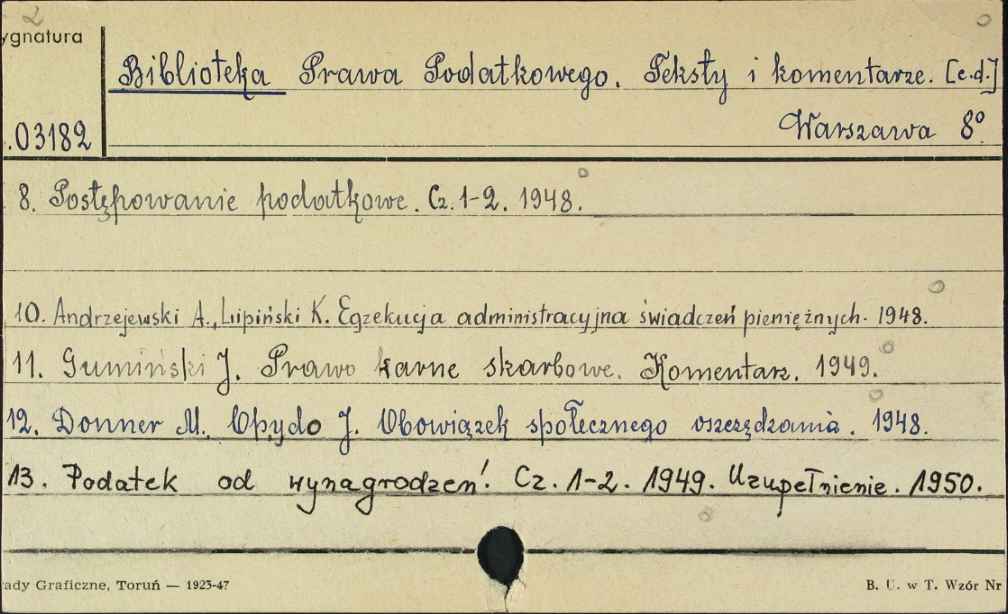 2
ygnatura
Biblioteka Prawa Podatkowego. Teksty i komentarze. [c.d.]
.03182 Warszawa 8°
8. Postępowanie podatkowe. Cz. 1-2. 1948.
10. Andrzejewski A., Lupiński K. Egzekucja administracyjna świadczeń pieniężnych. 1948.
11. Gumiński J. Prawo karne skarbowe. Komentarz. 1949.
12. Donner M., Opydo J. Obowiązek społecznego oszczędzania. 1948.
13. Podatek od wynagrodzeń. Cz. 1-2. 1949. Uzupełnienie. 1950.
ady Graficzne, Toruń — 1923-47
B. U. w T. Wzór Nr